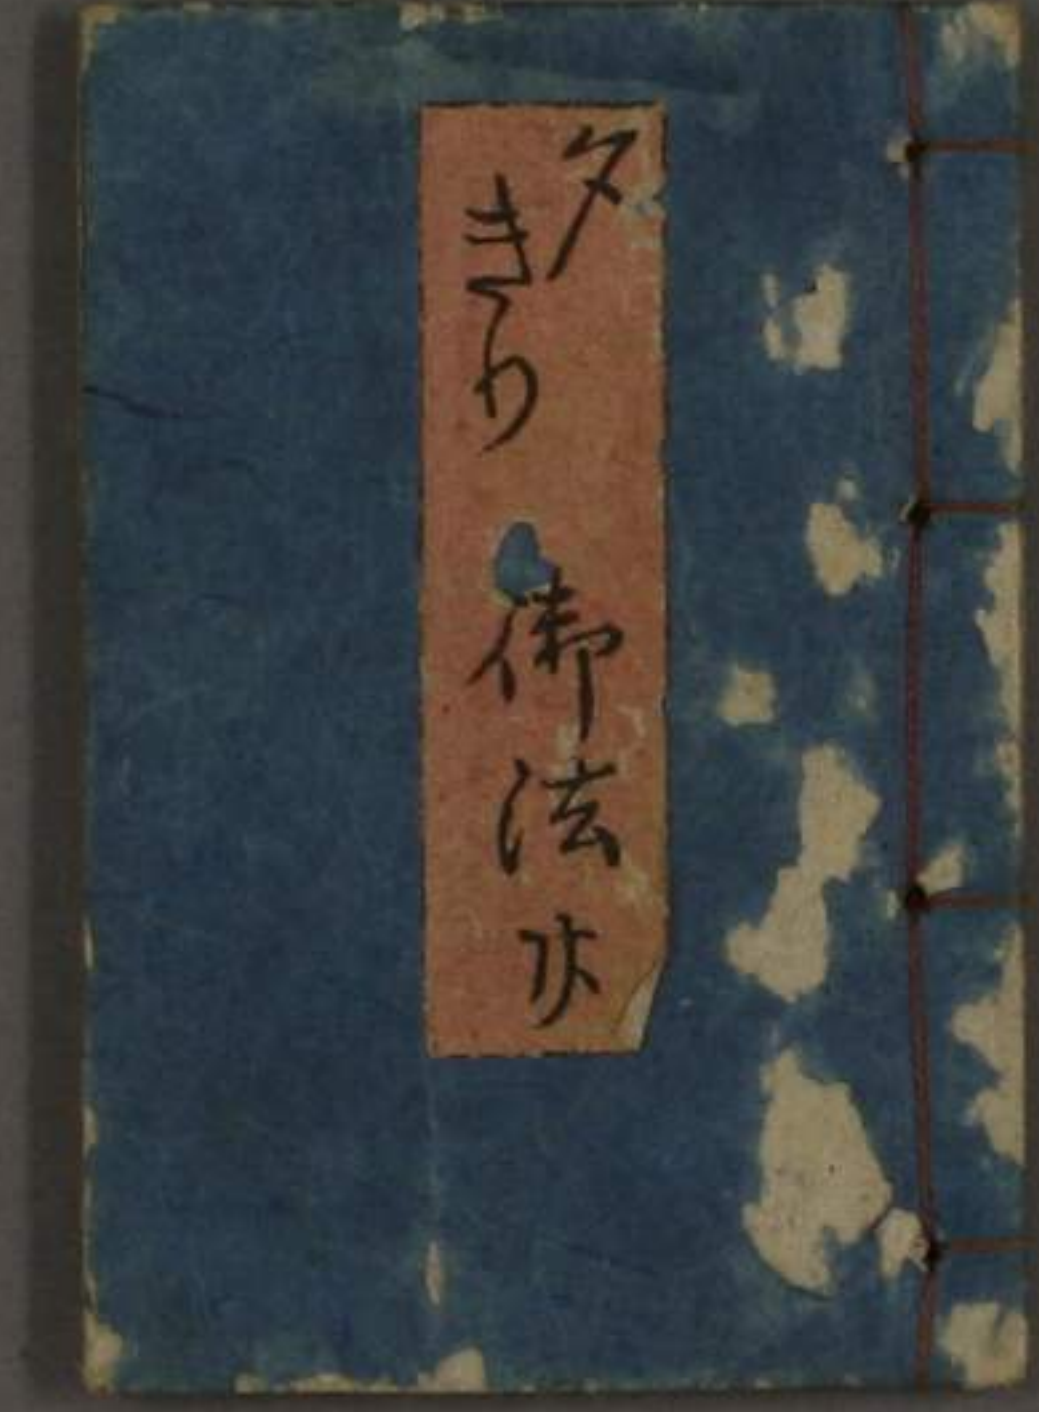 夕きり 御法